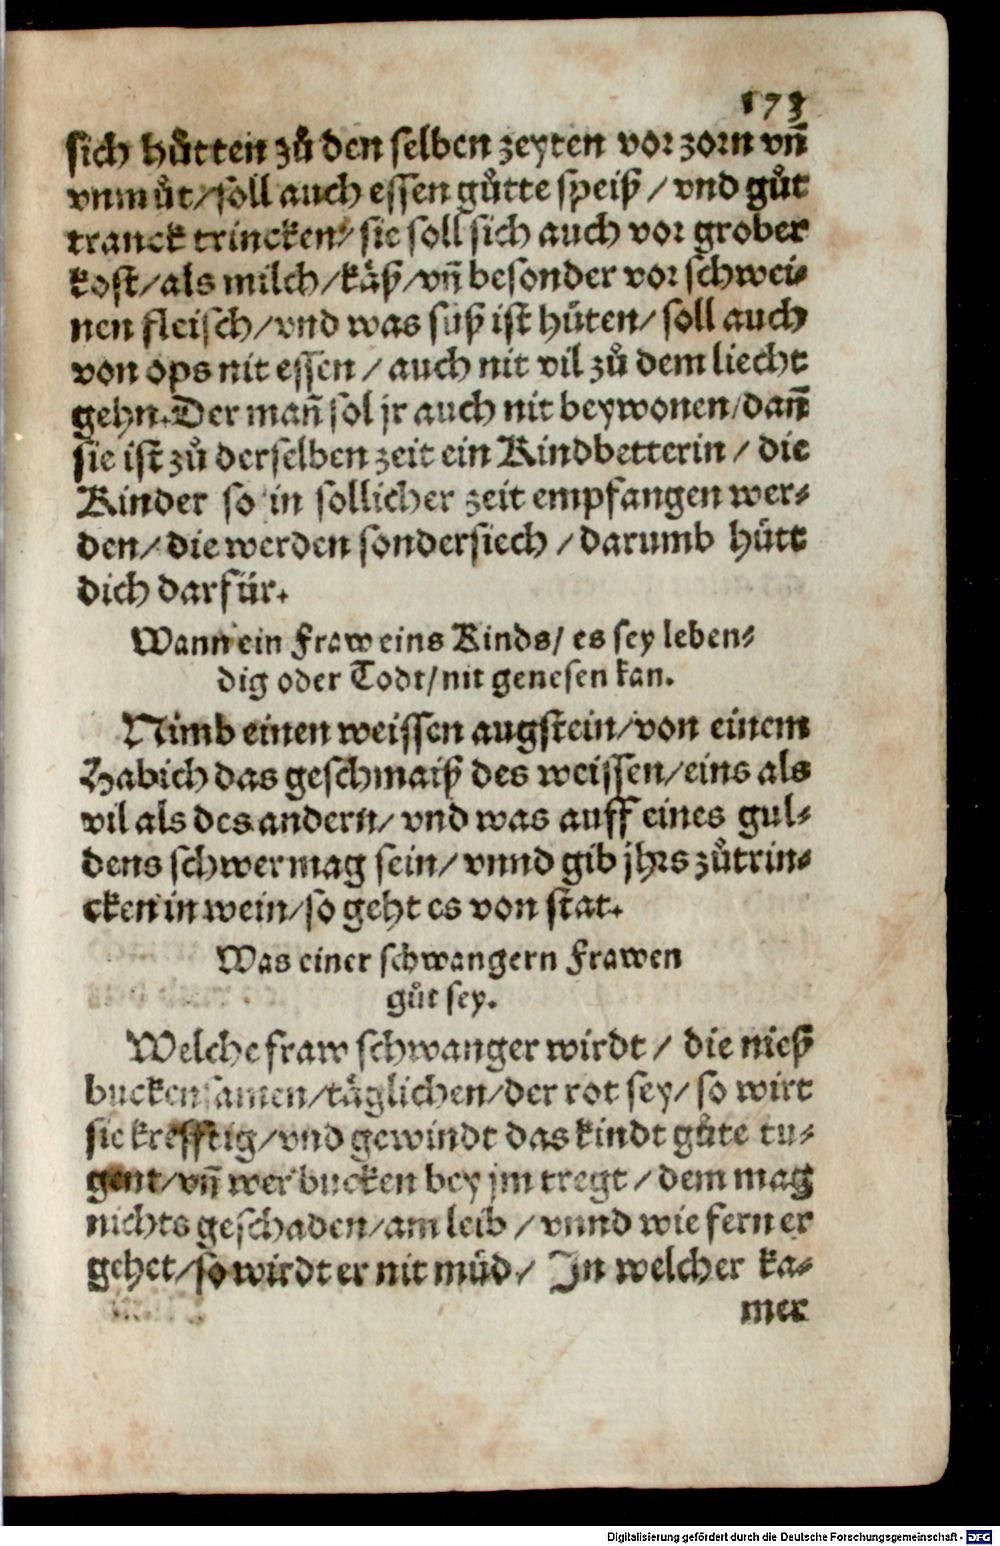 173
sich hůtten zů den selben zeyten vor zorn vñ
vnmůt / soll auch essen gůtte speiß / vnd gůt
tranck trincken / sie soll sich auch vor grober
kost / als milch / käß / vñ besonder vor schwei⸗
nen fleisch / vnd was suß ist hüten / soll auch
von ops nit essen / auch nit vil zů dem liecht
gehn. Der mañ sol jr auch nit beywonen / dañ
sie ist zů derselben zeit ein Kindbetterin / die
Kinder so in sollicher zeit empfangen wer⸗
den / die werden sondersiech / darumb hůtt
dich darfür.
Wann ein Fraw eins Kinds / es sey leben⸗
dig oder Todt / nit genesen kan.
Nimb einen weissen augstein / von einem
Habich das geschmaiß des weissen / eins als
vil als des andern / vnd was auff eines gul⸗
dens schwer mag sein / vnnd gib jhrs zůtrin⸗
cken in wein / so geht es von stat.
Was einer schwangern Frawen
gůt sey.
Welche fraw schwanger wirdt / die nieß
buckensamen / täglichen / der rot sey / so wirt
sie krefftig / vnd gewindt das kindt gůte tu⸗
gent / vñ wer bucken bey jm tregt / dem mag
nichts geschaden / am leib / vnnd wie fern er
gehet / so wirdt er nit müd / In welcher ka⸗
mer
Digitalisierung gefördert durch die Deutsche Forschungsgemeinschaft - DFG